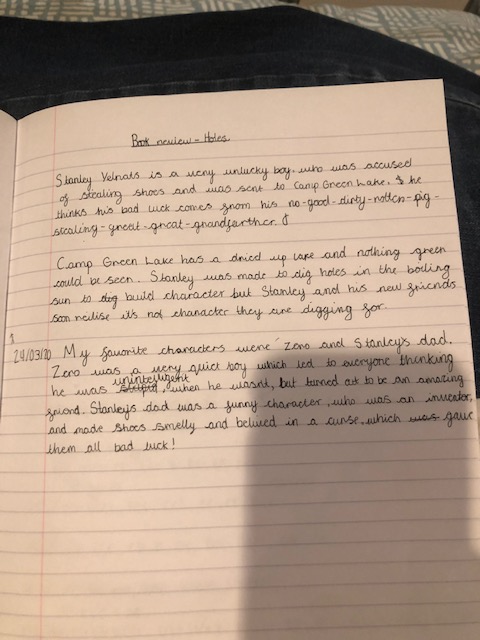 Book review - Holes
Stanley Yelnats is a very unlucky boy, who was accused
of stealing shoes and was sent to Camp Green Lake, & he
thinks his bad luck comes from his no-good-dirty-rotten-pig-
stealing-great-great-grandfarther.
Camp Green Lake has a dried up lake and nothing green
could be seen. Stanley was made to dig holes in the boiling
sun to dig build character but Stanley and his new friends
soon relise it's not character they are digging for.
24/03/20 My favorite characters were Zero and Stanley's dad.
Zero was a very quiet boy which led to everyone thinking
he was stupid unintelligent, when he wasn't, but turned out to be an amazing
friend. Stanley's dad was a funny character, who was an inventor,
and made shoes smelly and belived in a curse, which was gave
them all bad luck!